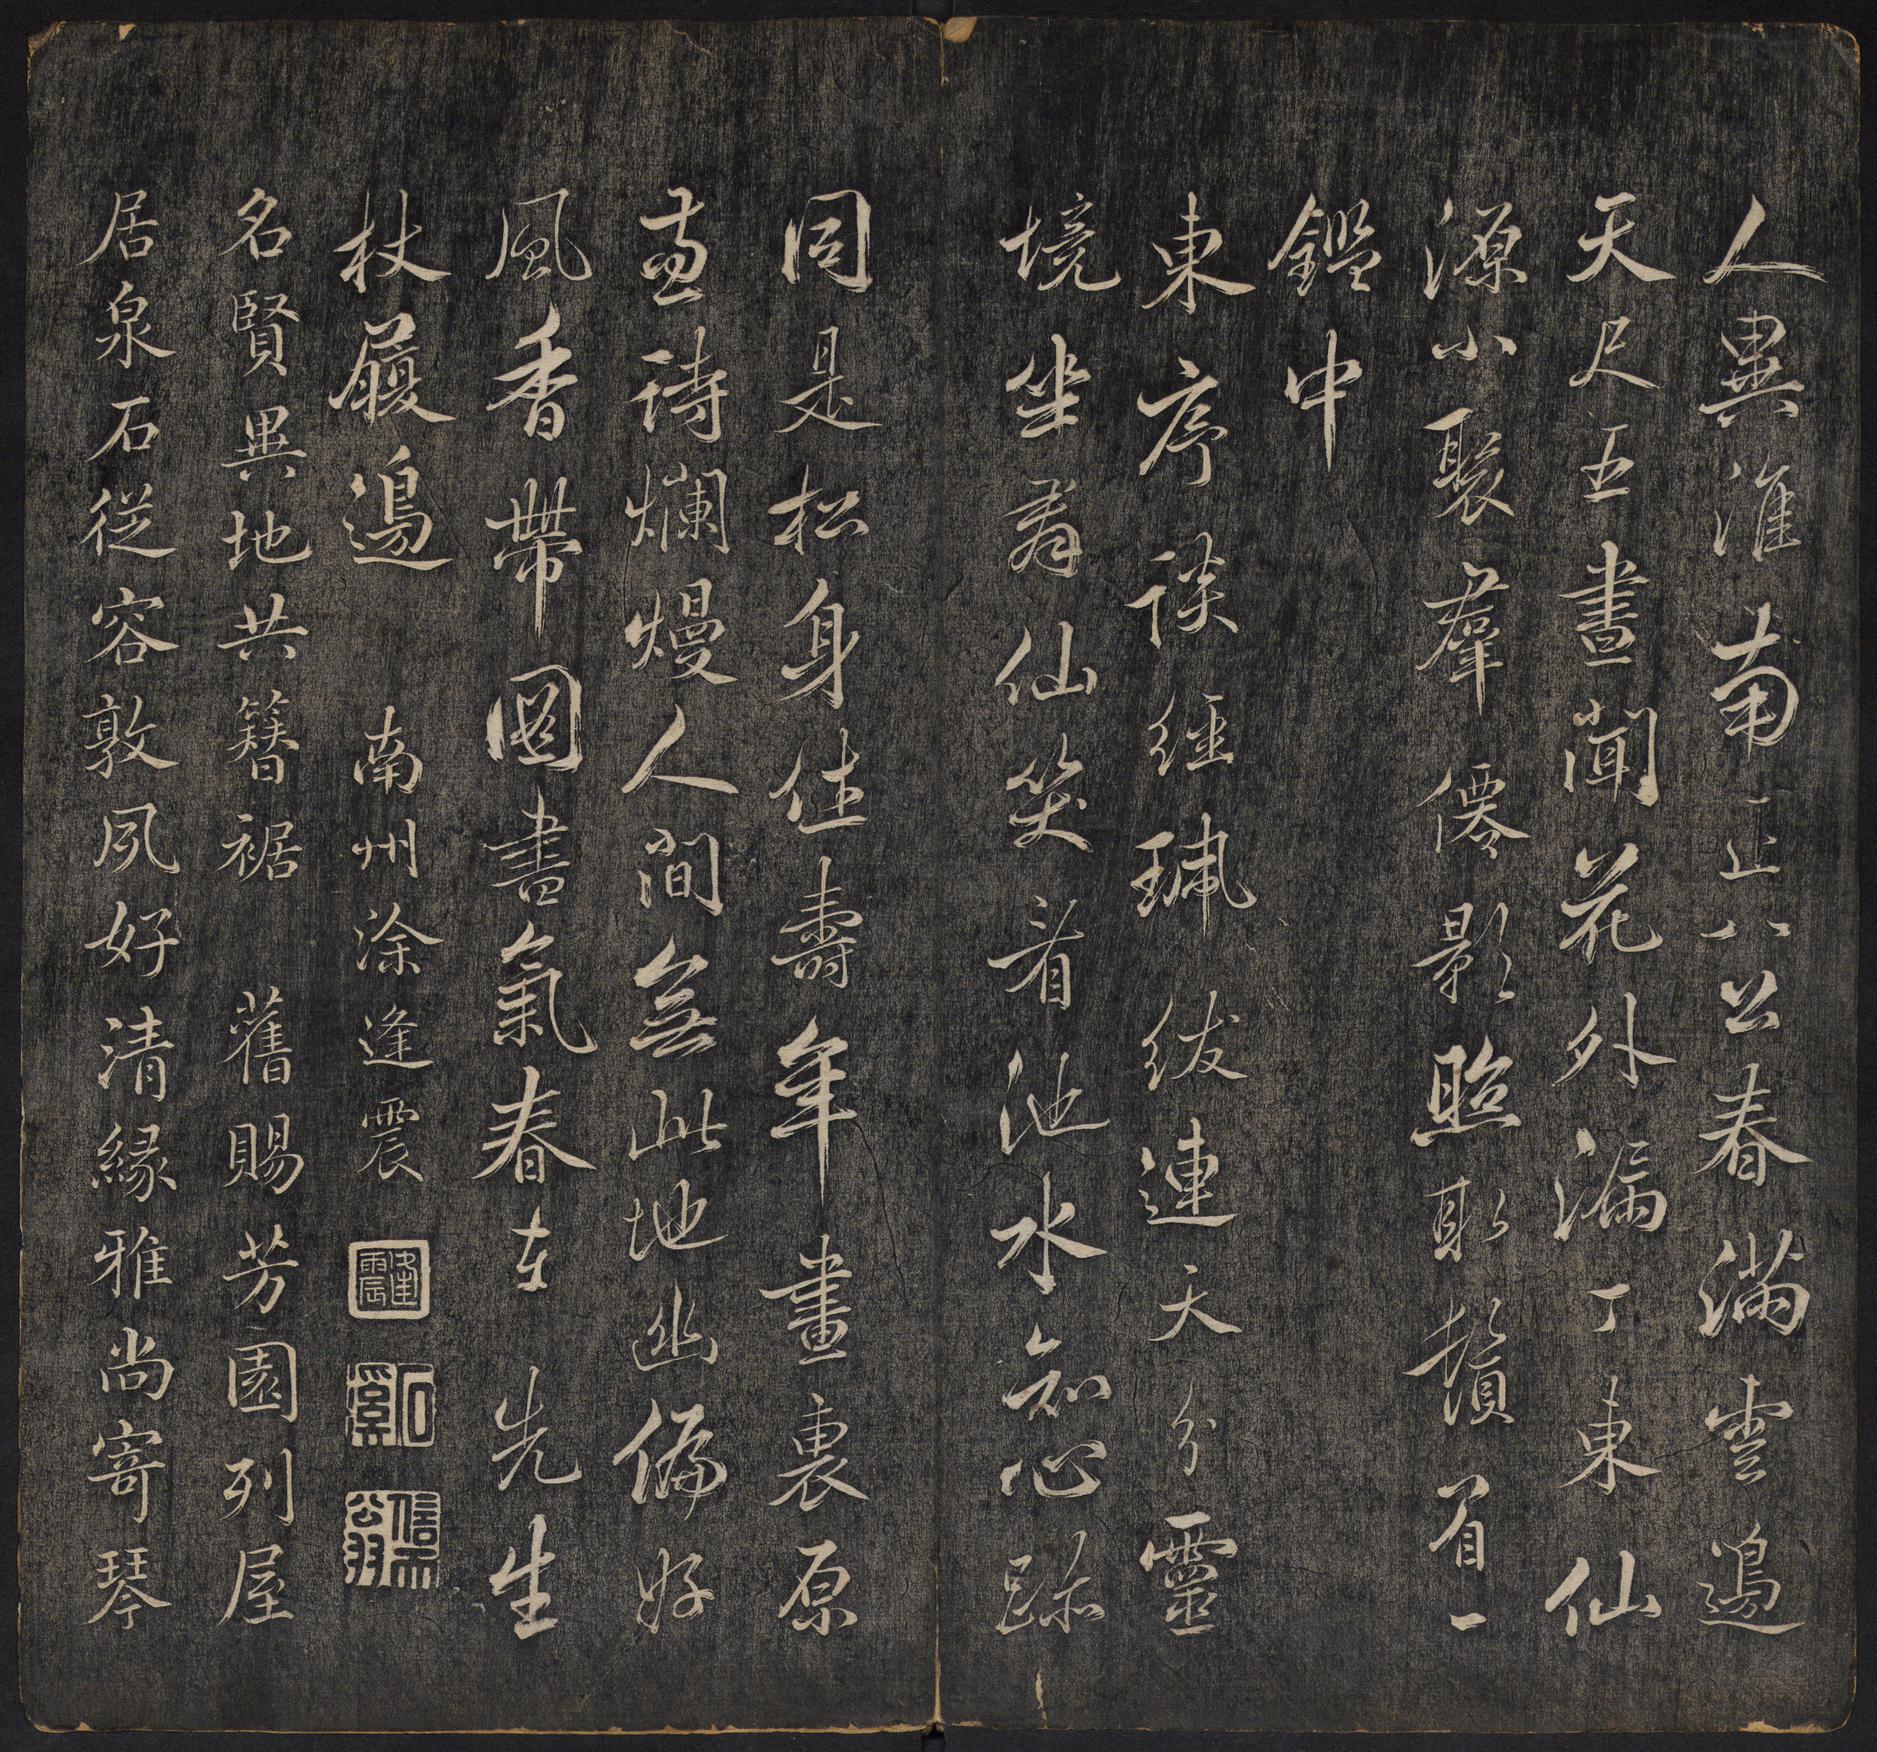 人異淮南正八公春滿雲邊
天尺五畫聞花外漏丁東仙
源小聚羣僊影照耿鬚眉一
鑑中
東序談經珮紱連天分靈
境坐羣仙笑看池水知心跡
同是松身住壽年畫裏原
兼詩爛熳人間無此地幽偏好
風香帶圖書氣春在先生
杖履邊 南州涂逢震
逢震
石溪
信天翁
名賢異地共簪裾 舊賜芳園列屋
居泉石從容敦夙好清緣雅尚寄琴